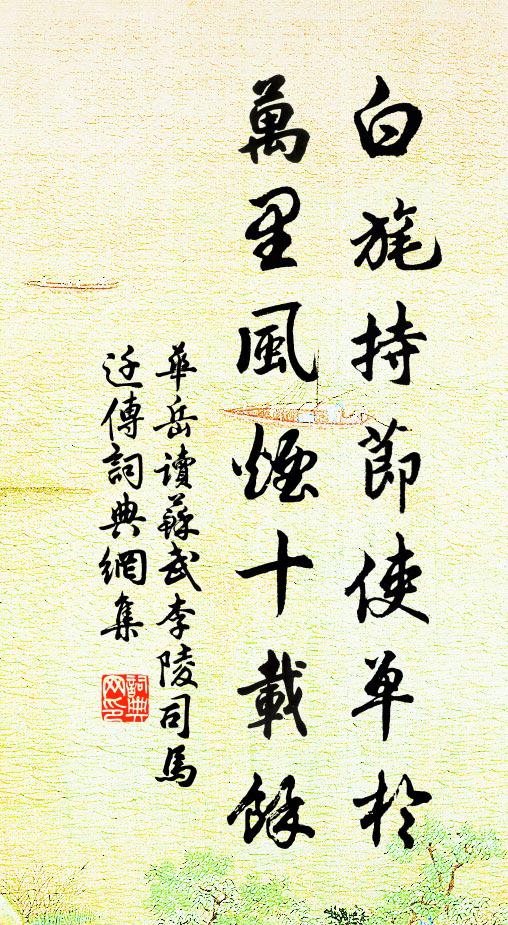 白旄持節使單於
萬里風煙十載餘
華岳讀蘇武李陵司馬
迁傳詞典網集
詞典
网印